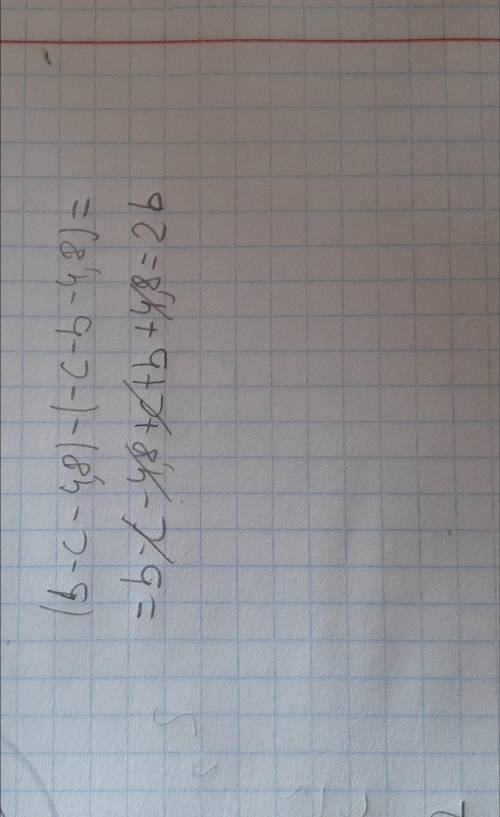 (b-c-4,8)-(-c-b-4,8)=
=b-c-4,8+c+b+4,8=2b